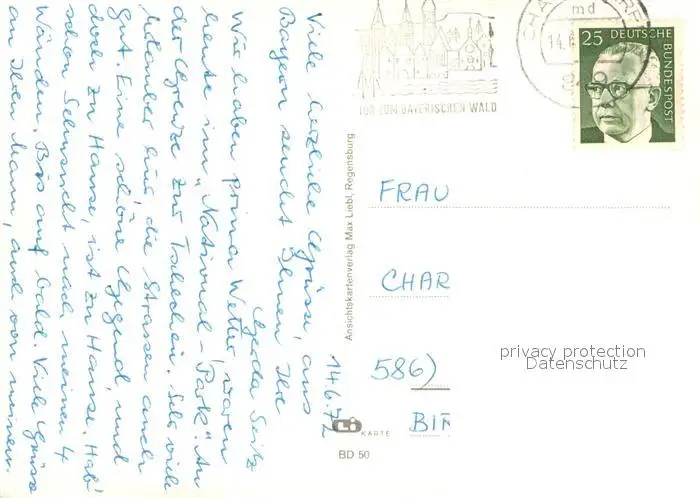 14.6.72
Viele herzliche Grüsse aus
Bayern sendet Ihnen, Ihre
Gerda Seitz
Wir haben prima Wetter, waren
heute im "National-Park". An
der Grenze zur Tschechei. Sehr viele
hier, die Strassen auch
gut. Eine schöne Gegend, und
doch zu Hause, ist zu Hause. Hab'
schon Sehnsucht nach meinen 4
Wänden. Bis auf bald. Viele Grüsse
an Ihren Mann, auch von meinem.
Ansichtskartenverlag Max Liebl, Regensburg
Li KARTE
BD 50
TOR ZUM BAYERISCHEN WALD
CHAM
14.6
md
25 DEUTSCHE
BUNDESPOST
FRAU
CHAR
586)
BIR
privacy protection
Datenschutz